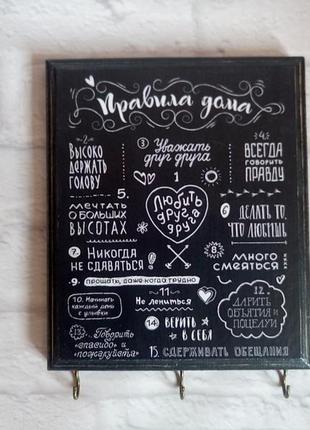 Правила дома
·2·
ВЫСОКО
ДЕРЖАТЬ
ГОЛОВУ
3 Уважать
друг друга
·4·
ВСЕГДА
говорить
ПРАВДУ
1
Любить
друг
друга
5.
МЕЧТАТЬ
О БОЛЬШИХ
ВЫСОТАХ
6 ДЕЛАТЬ ТО,
ЧТО ЛЮБИШЬ
7. НИКОГДА
НЕ СДАВАТЬСЯ!
8.
МНОГО
СМЕЯТЬСЯ
·9· ПРОЩАТЬ, ДАЖЕ КОГДА ТРУДНО
10. Начинать
каждый день
с улыбки
11
Не лениться
12.
ДАРИТЬ
ОБЪЯТИЯ И
ПОЦЕЛУИ
13. Говорить
"спасибо" и
"пожалуйста"
14 ВЕРИТЬ
В СЕБЯ
15. СДЕРЖИВАТЬ ОБЕЩАНИЯ